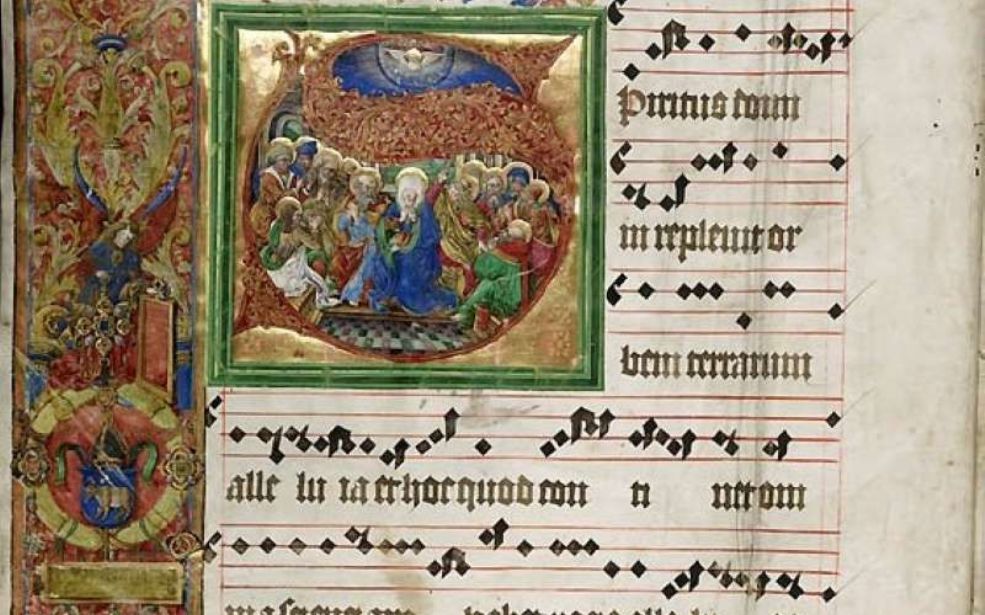 Spiritus domi
ni repleuit or
bem terrarum
alle lu ia et hoc quod con ti net om